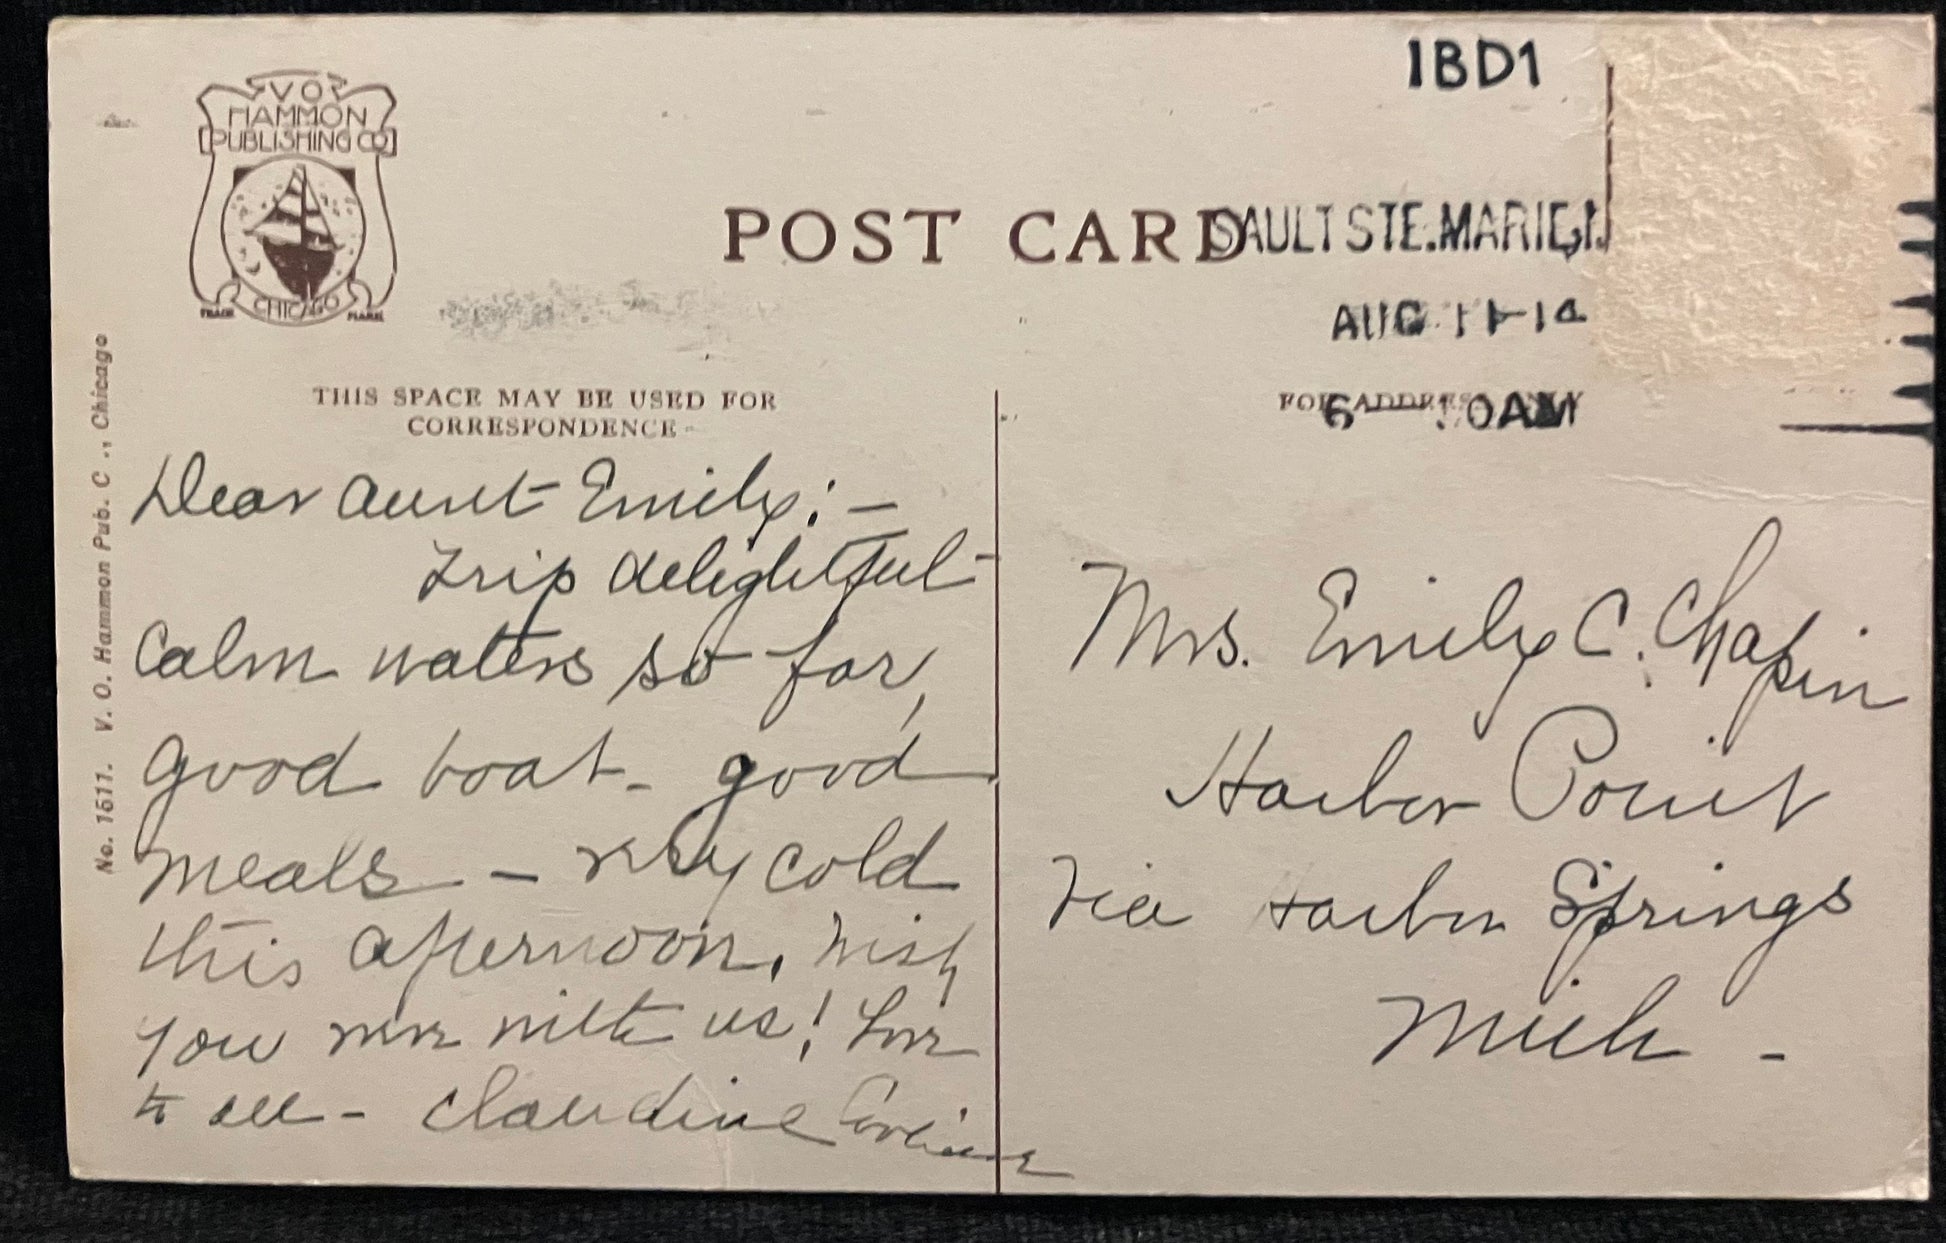 V O
HAMMON
PUBLISHING CO
CHICAGO
TRADE MARK
1BD1
POST CARD
SAULT STE. MARIE
AUG 11-14
6 - 10AM
THIS SPACE MAY BE USED FOR
CORRESPONDENCE
FOR ADDRESS ONLY
No. 1511. V. O. Hammon Pub. C ., Chicago
Dear Aunt Emily:-
Trip delightful-
Calm waters so far,
good boat - good
meals - very cold
this afternoon. Wish
you were with us! Love
to all - Claudine
Mrs. Emily C. Chapin
Harbor Point
Via Harbor Springs
Mich -